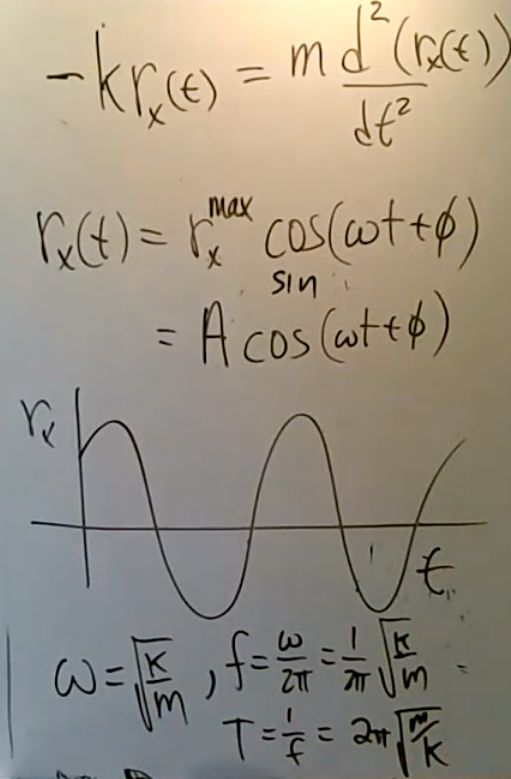 -kr_x(t) = m d²(r_x(t))/dt²
r_x(t) = r_x^max cos(ωt+φ)
sin
= A cos(ωt+φ)
r_x
t
ω = √(k/m), f = ω/2π = 1/2π √(k/m)
T = 1/f = 2π √(m/k)